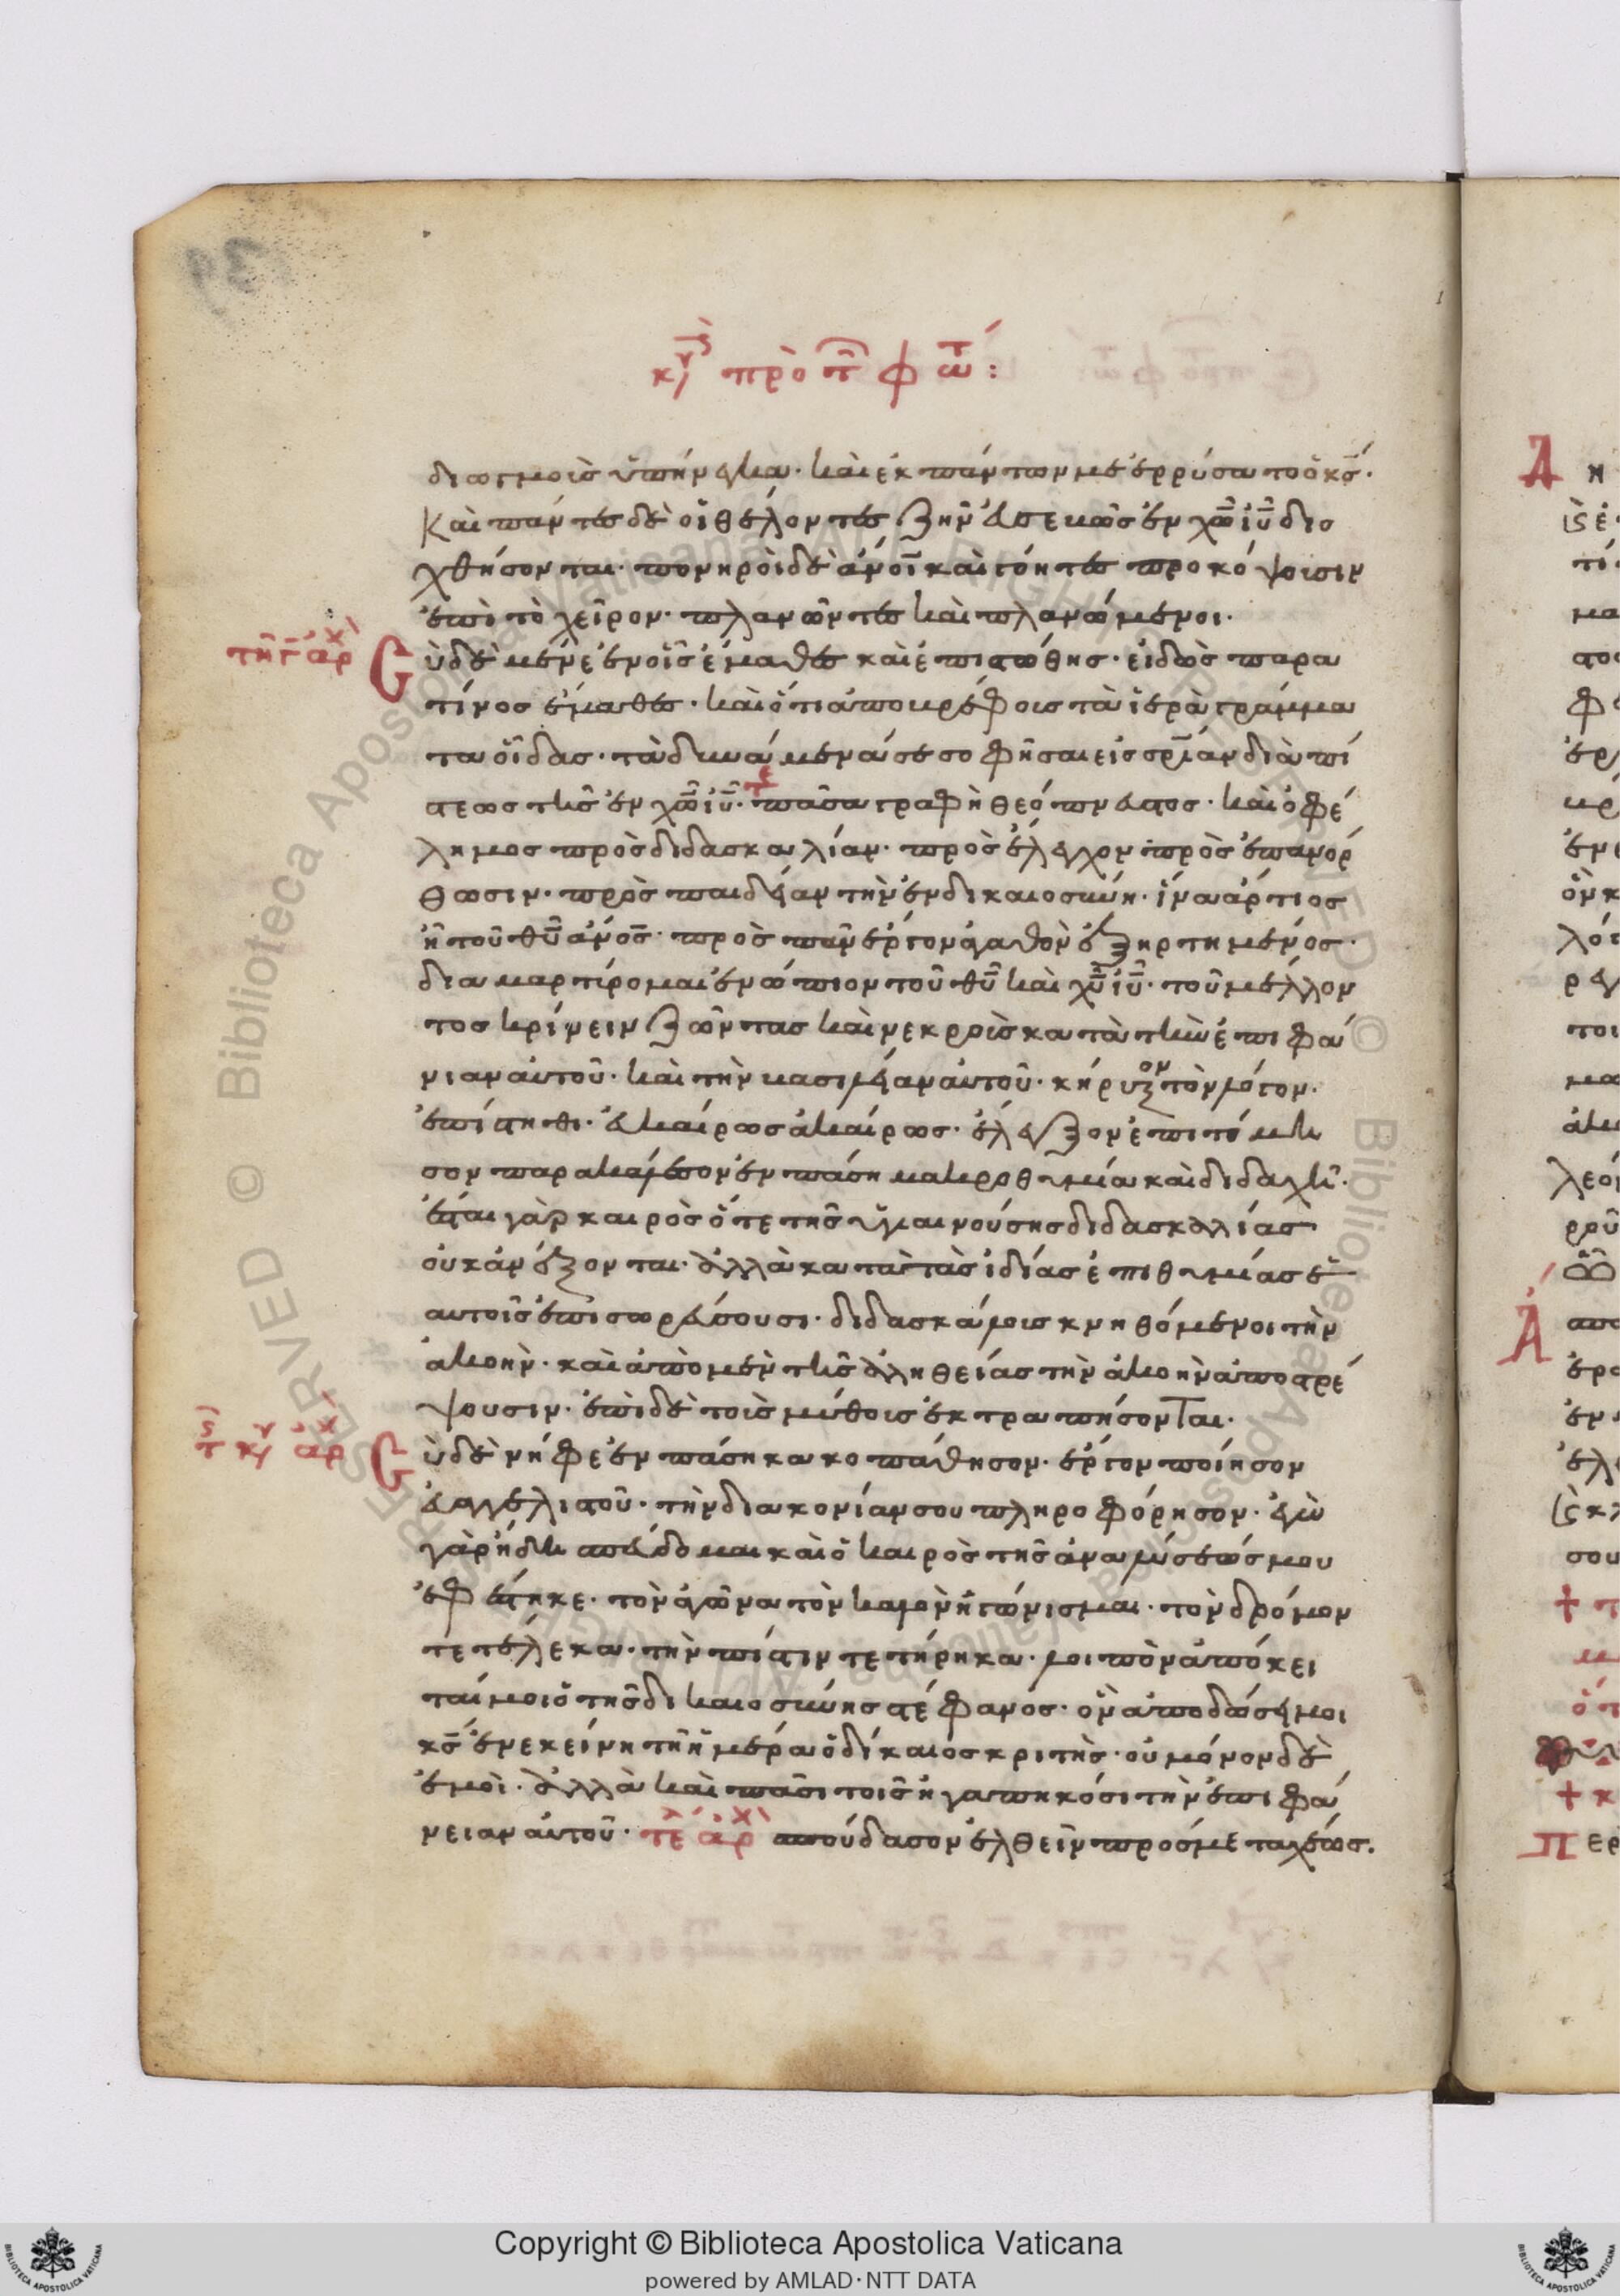 κυ πρὸ τ φώτ:
διωγμοῖς ὑπήνεγκα· καὶ ἐκ πάντων με ἐρρύσατο ὁ κς·
Καὶ πάντες δὲ οἱ θέλοντες ζῆν εὐσεκῶς ἐν χω ιυ διο
χθήσονται· πονηροὶ δὲ ἀνοι καὶ γόητες προκόψοισιν
ἐπὶ τὸ χεῖρον· πλανῶντες καὶ πλανώμενοι·
τῆ γ αρχ Cὺ δὲ μένε ἐν οἷς ἔμαθες καὶ ἐπιστώθης· εἰδὼς παρὰ
τίνος ἔμαθες· καὶ ὅτι ἀπὸ κρέφοις τὰ ἱερὰ γράμμα
τα οἶδας· τὰ δυνάμενά σε σοφῆσαι εἰς σρίαν διὰ πί
στεως τῆς ἐν χω ιυ· τε πᾶσα γραφὴ θεόπνευστος· καὶ ὀφέ
λημος πρὸς διδασκαλίαν· πρὸς ἔλεγχον πρὸς ἐπανόρ
θωσιν· πρὸς παιδείαν τὴν ἐν δικαιοσύνη· ἵνα ἄρτιος
ἦ τοῦ θυ ἀνος· πρὸς πᾶν ἔργον ἀγαθὸν ἐξηρτημένος·
διαμαρτίρομαι ἐνώπιον τοῦ θυ καὶ χυ ιυ· τοῦ μέλλον
τος κρίνειν ζῶντας καὶ νεκροὺς κατὰ τὴν ἐπιφά
νιαν αὐτοῦ· καὶ τὴν βασιλείαν αὐτοῦ· κήρυξον τὸν λόγον·
ἐπίστηθι· εὐκαίρως ἀκαίρως· ἔλεγξον ἐπιτίμη
σον παρακάλεσον ἐν πάση μακροθυμία καὶ διδαχῆ·
ἔσται γὰρ καιρὸς ὅτε τῆς ὑγιαινούσης διδασκαλίας
οὐκ ἀνέξονται· ἀλλὰ κατὰ τὰς ἰδίας ἐπιθυμίας ἑ
αυτοῖς ἐπισωρεύσουσι· διδασκάλοις κνηθόμενοι τὴν
ἀκοὴν· καὶ ἀπὸ μὲν τῆς ἀληθείας τὴν ἀκοὴν ἀποστρέ
ψουσιν· ἐπὶ δὲ τοῖς μύθοις ἐκτραπήσονται·
τ κυ αρχ Cὺ δὲ νήφε ἐν πάση κακοπάθησον· ἔργον ποίησον
εὐαγγελιστοῦ· τὴν διακονίαν σου πληροφόρησον· ἐγὼ
γὰρ ἤδη σπένδομαι καὶ ὁ καιρὸς τῆς ἀναλύσεώς μου
ἐφέστηκε· τὸν ἀγῶνα τὸν καλὸν ἠγώνισμαι· τὸν δρόμον
τετέλεκα· τὴν πίστιν τετήρηκα· λοιπὸν ἀπόκει
ταί μοι ὁ τῆς δικαιοσύνης στέφανος· ὃν ἀποδώσει μοι
κς ἐν ἐκείνη τῆ ἡμέρα ὁ δίκαιος κριτὴς· οὐ μόνον δὲ
ἐμοὶ· ἀλλὰ καὶ πᾶσι τοῖς ἠγαπηκόσι τὴν ἐπιφά
νειαν αὐτοῦ· τε αρχ σπούδασον ἐλθεῖν πρός με ταχέως.
Copyright © Biblioteca Apostolica Vaticana
powered by AMLAD·NTT DATA